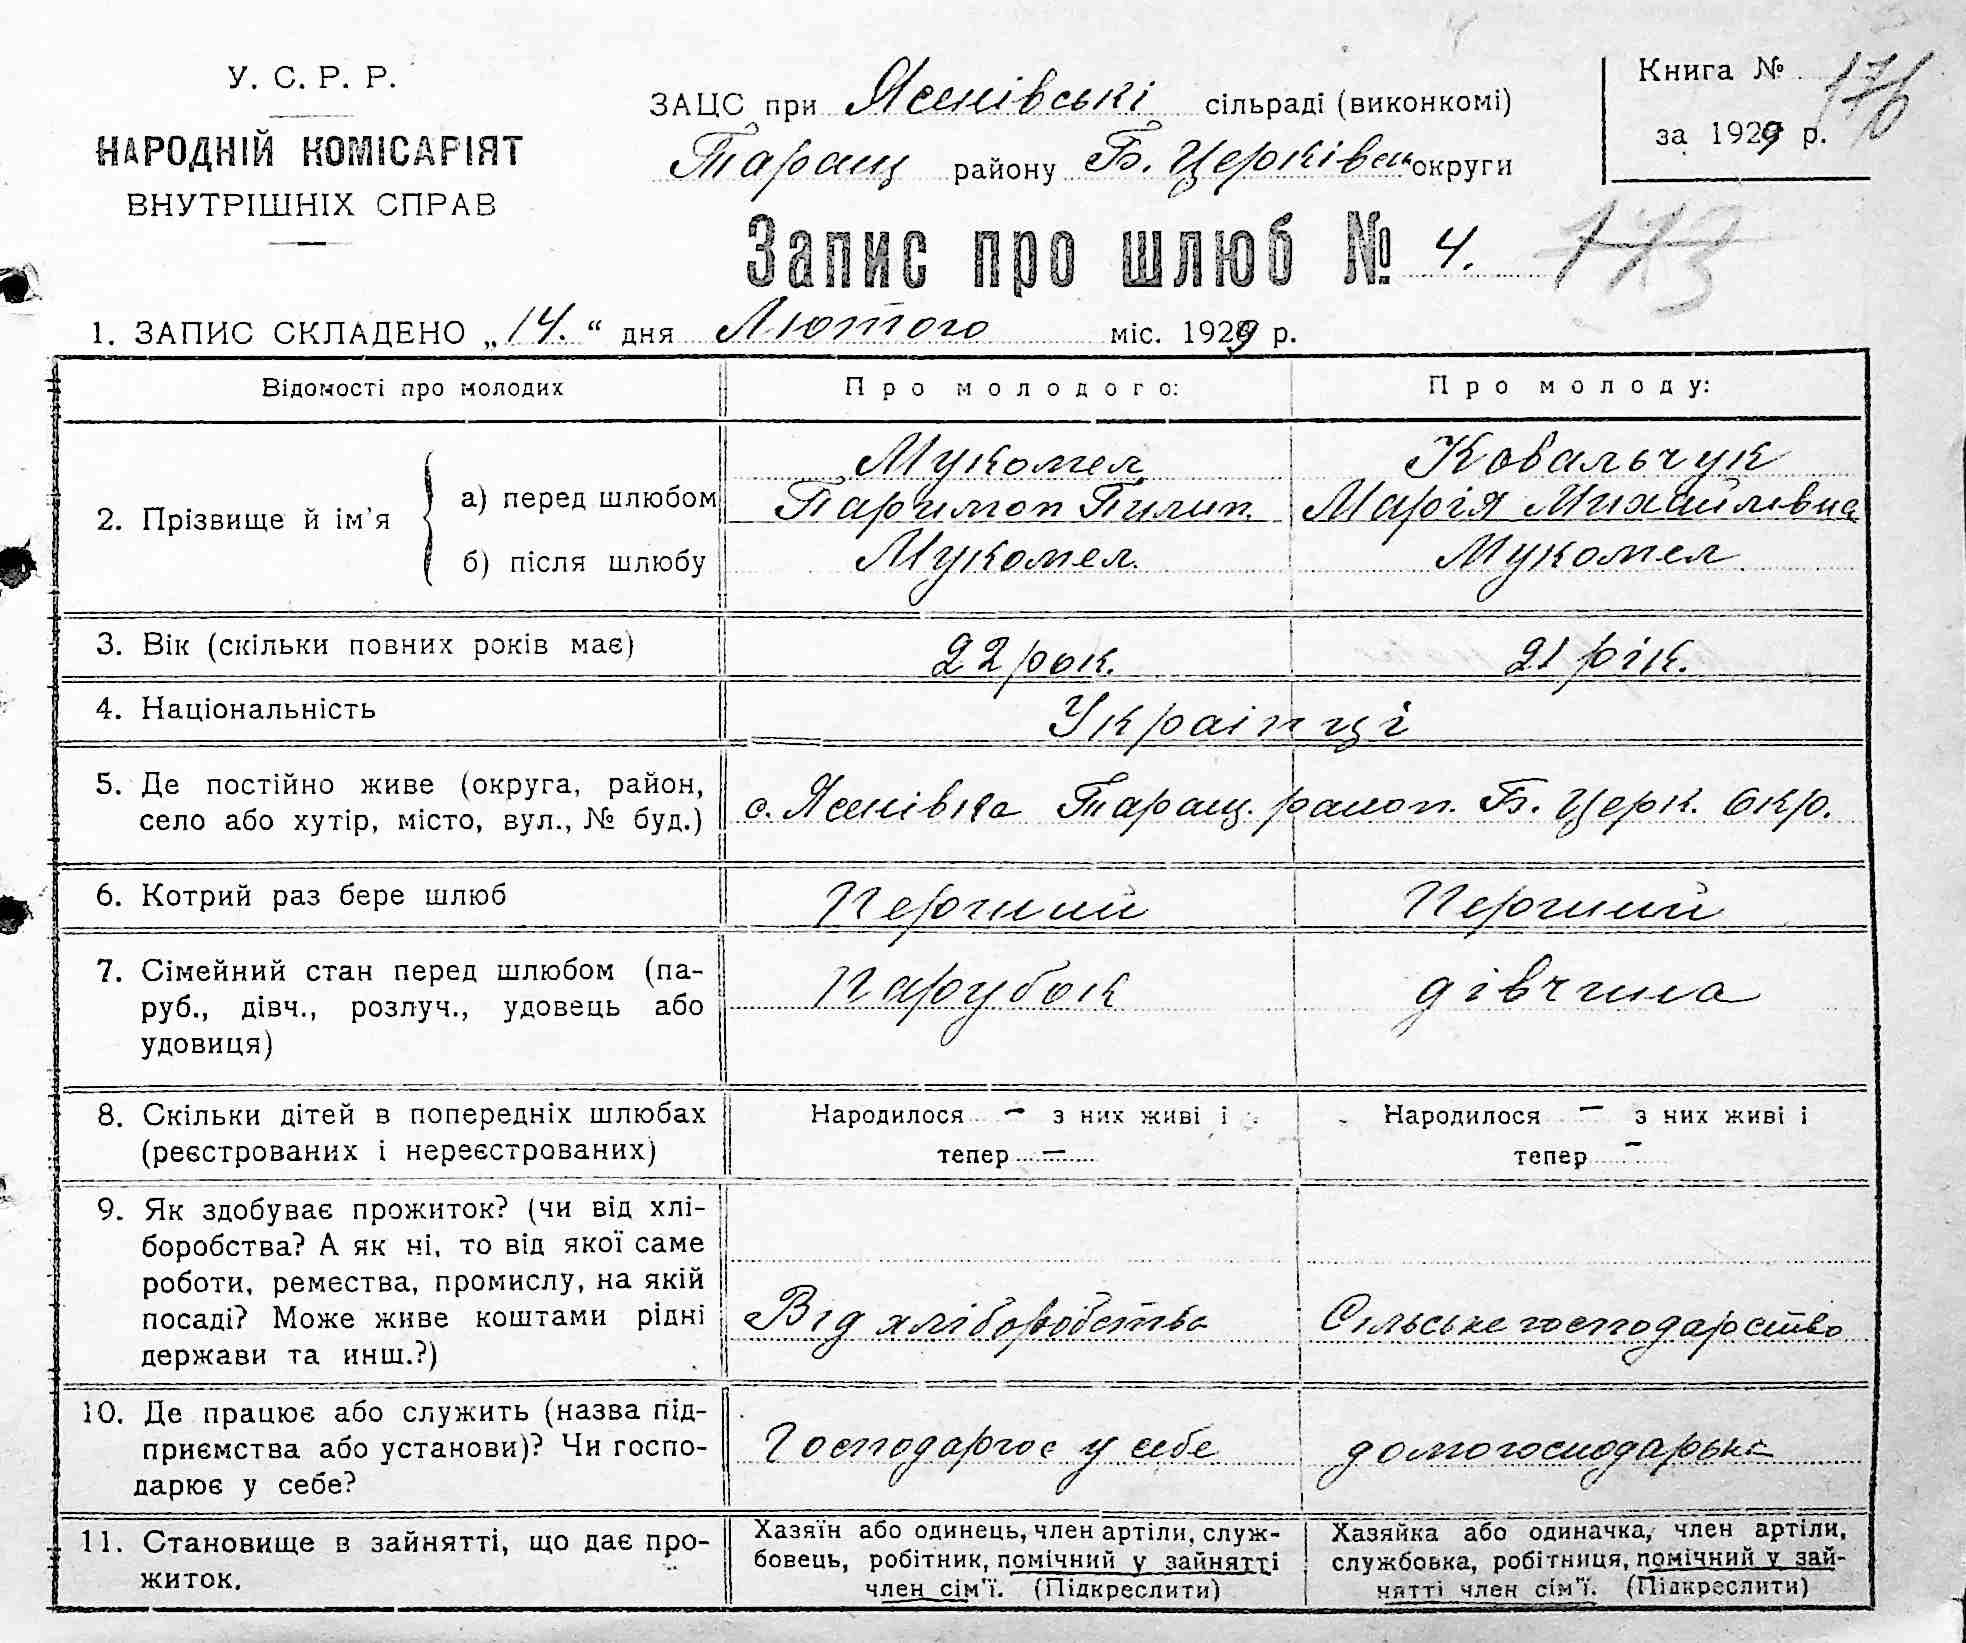 У. С. Р. Р.
НАРОДНІЙ КОМІСАРІЯТ
ВНУТРІШНІХ СПРАВ
ЗАЦС при Ясенівські сільраді (виконкомі)
Таращ району Б. Церківськ округи
Книга №
за 1929 р.
176
Запис про шлюб № 4.
173
1. ЗАПИС СКЛАДЕНО „14.“ дня Лютого міс. 1929 р.
Відомості про молодих
Про молодого:
Про молоду:
2. Прізвище й ім’я
а) перед шлюбом
Мукомел
Ковальчук
Пилип.
Марія Михайлівна
б) після шлюбу
Мукомел.
Мукомел
3. Вік (скільки повних років має)
22 рок.
21 рік.
4. Національність
Украінці
5. Де постійно живе (округа, район,
село або хутір, місто, вул., № буд.)
с. Ясенівка Таращ. район. Б. Церк. Окр.
6. Котрий раз бере шлюб
Перший
Перший
7. Сімейний стан перед шлюбом (па-
руб., дівч., розлуч., удовець або
удовиця)
Парубок
дівчина
8. Скільки дітей в попередніх шлюбах
(реєстрованих і нереєстрованих)
Народилося – з них живі і
тепер –
Народилося – з них живі і
тепер –
9. Як здобуває прожиток? (чи від хлі-
боробства? А як ні, то від якої саме
роботи, ремества, промислу, на якій
посаді? Може живе коштами рідні
держави та инш.?)
Від хліборобства
Сільське господарство
10. Де працює або служить (назва під-
приємства або установи)? Чи госпо-
дарює у себе?
Господарює у себе
домогосподарька
11. Становище в зайнятті, що дає про-
житок.
Хазяїн або одинець, член артіли, служ-
бовець, робітник, помічний у зайнятті
член сім’ї. (Підкреслити)
Хазяйка або одиначка, член артіли,
службовка, робітниця, помічний у зай-
нятті член сім’ї. (Підкреслити)